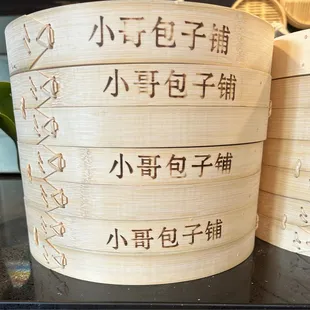 小哥包子铺
小哥包子铺
小哥包子铺
小哥包子铺